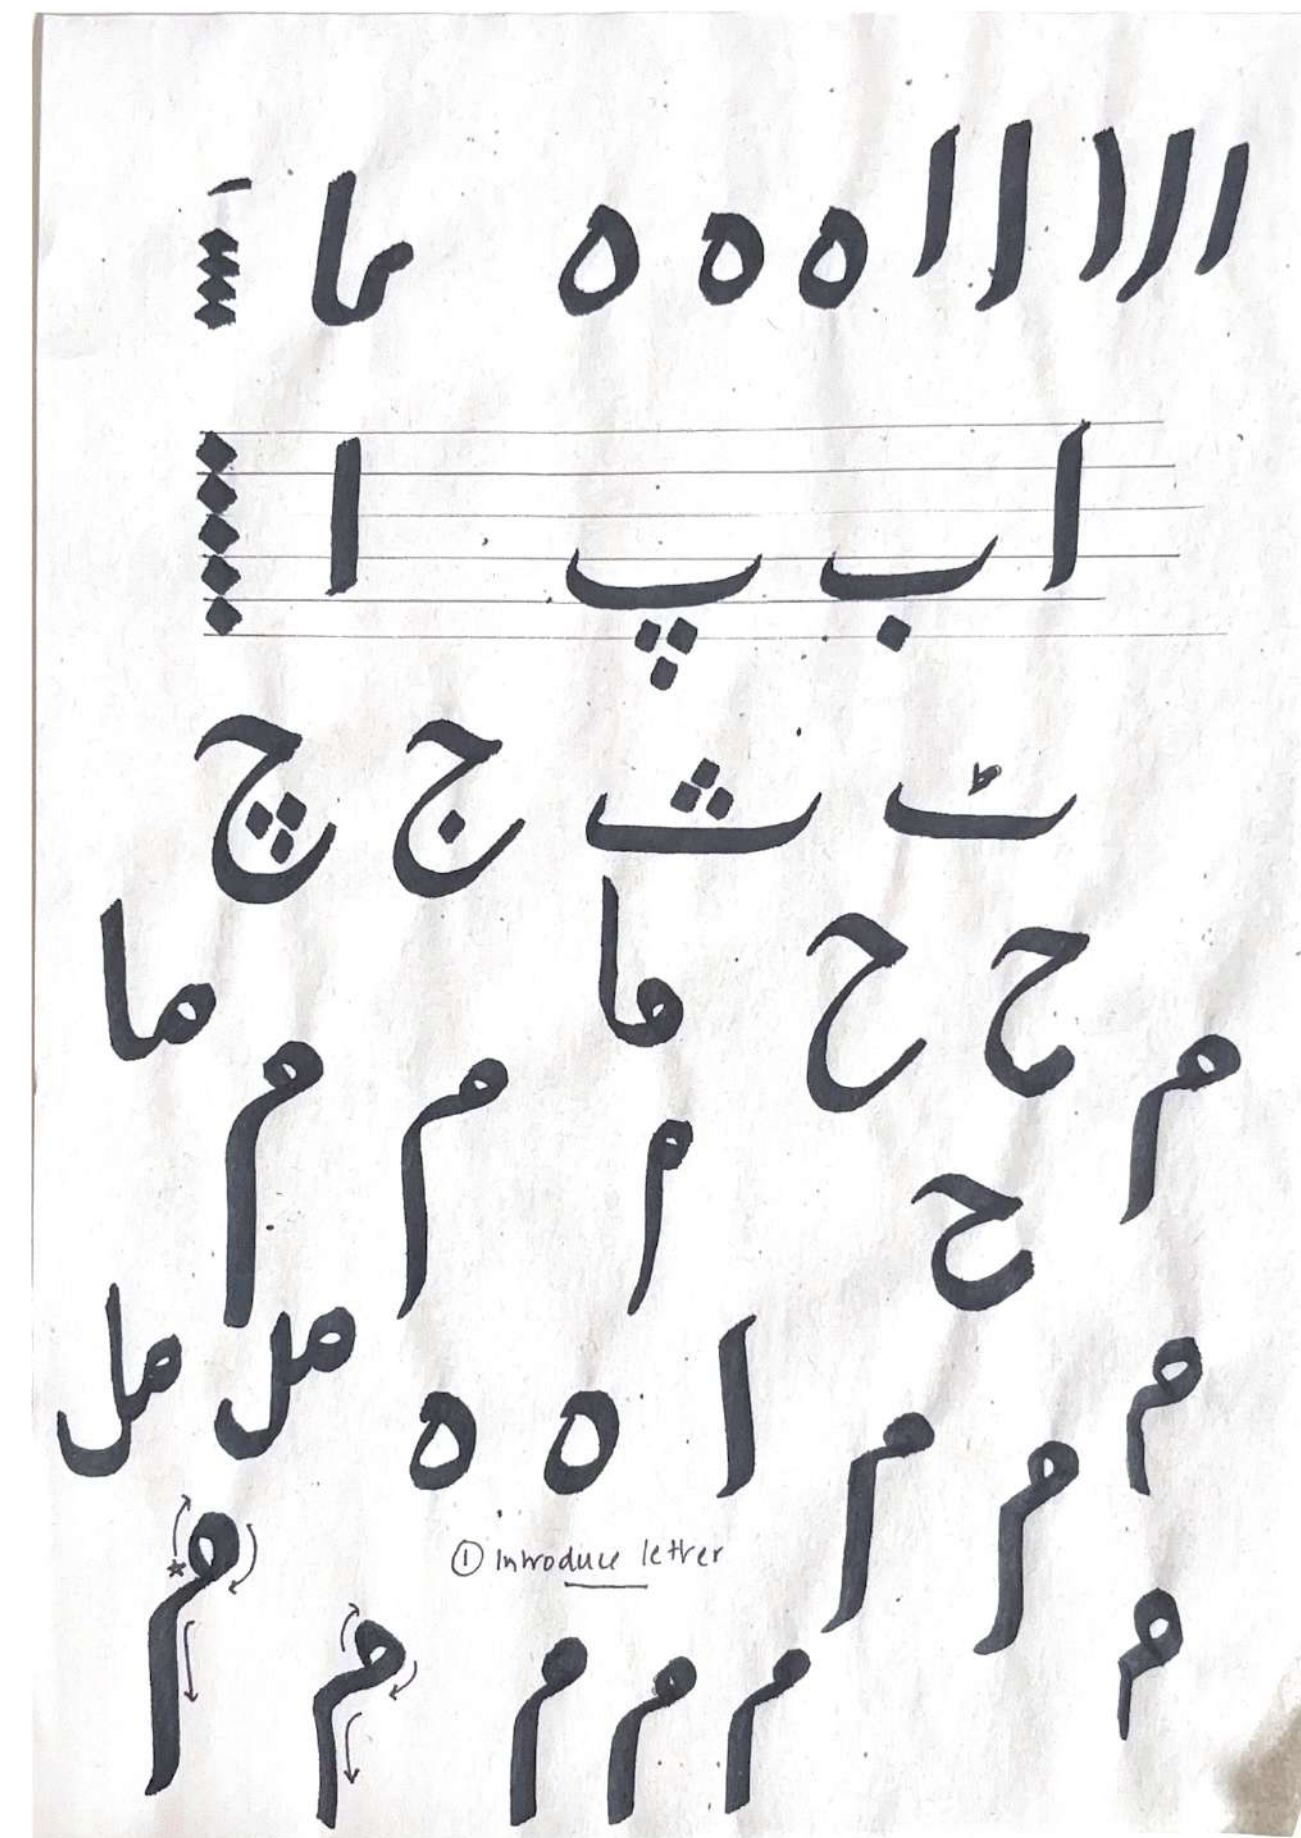 ا ا ا ا ا ه ه ه ما
ا ب پ ا
ٹ ث ج چ
ح ح ما ما
م م م م
ح
م م م ا ه ه مل مل
① Introduce letter
م م م م م م